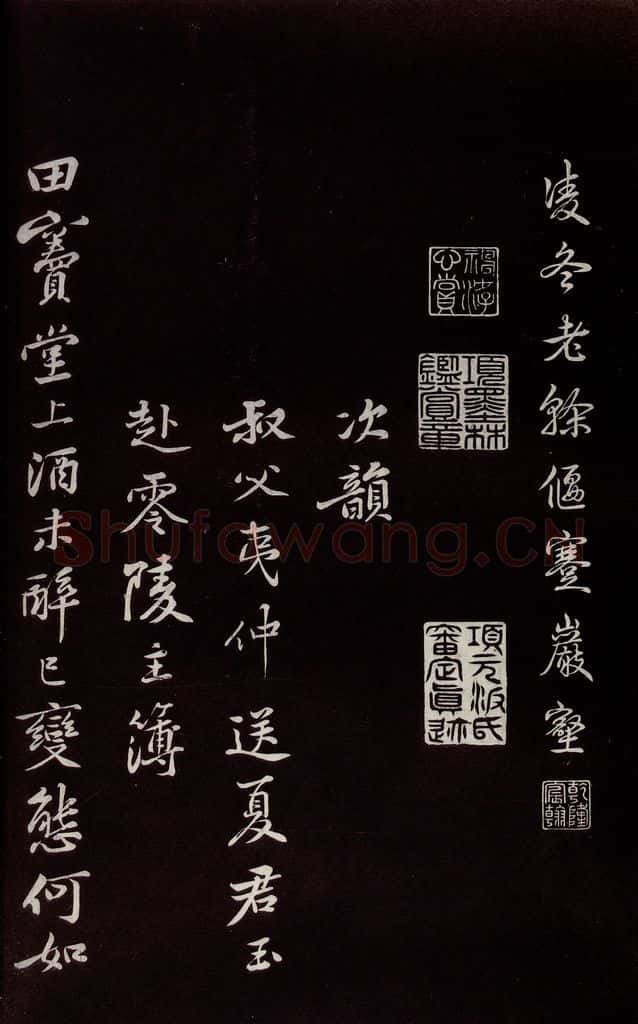 凌冬老榦偃蹇巖壑
乾隆宸翰
神游心賞
項墨林鑑賞章
項元汴氏審定真迹
次韻
叔父夷仲送夏君玉
赴零陵主簿
田竇堂上酒未醉已變態何如
Shufawang.CN